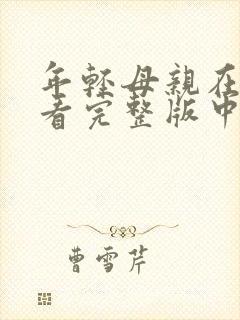 年轻母亲在
看完整版中
曹雪芹